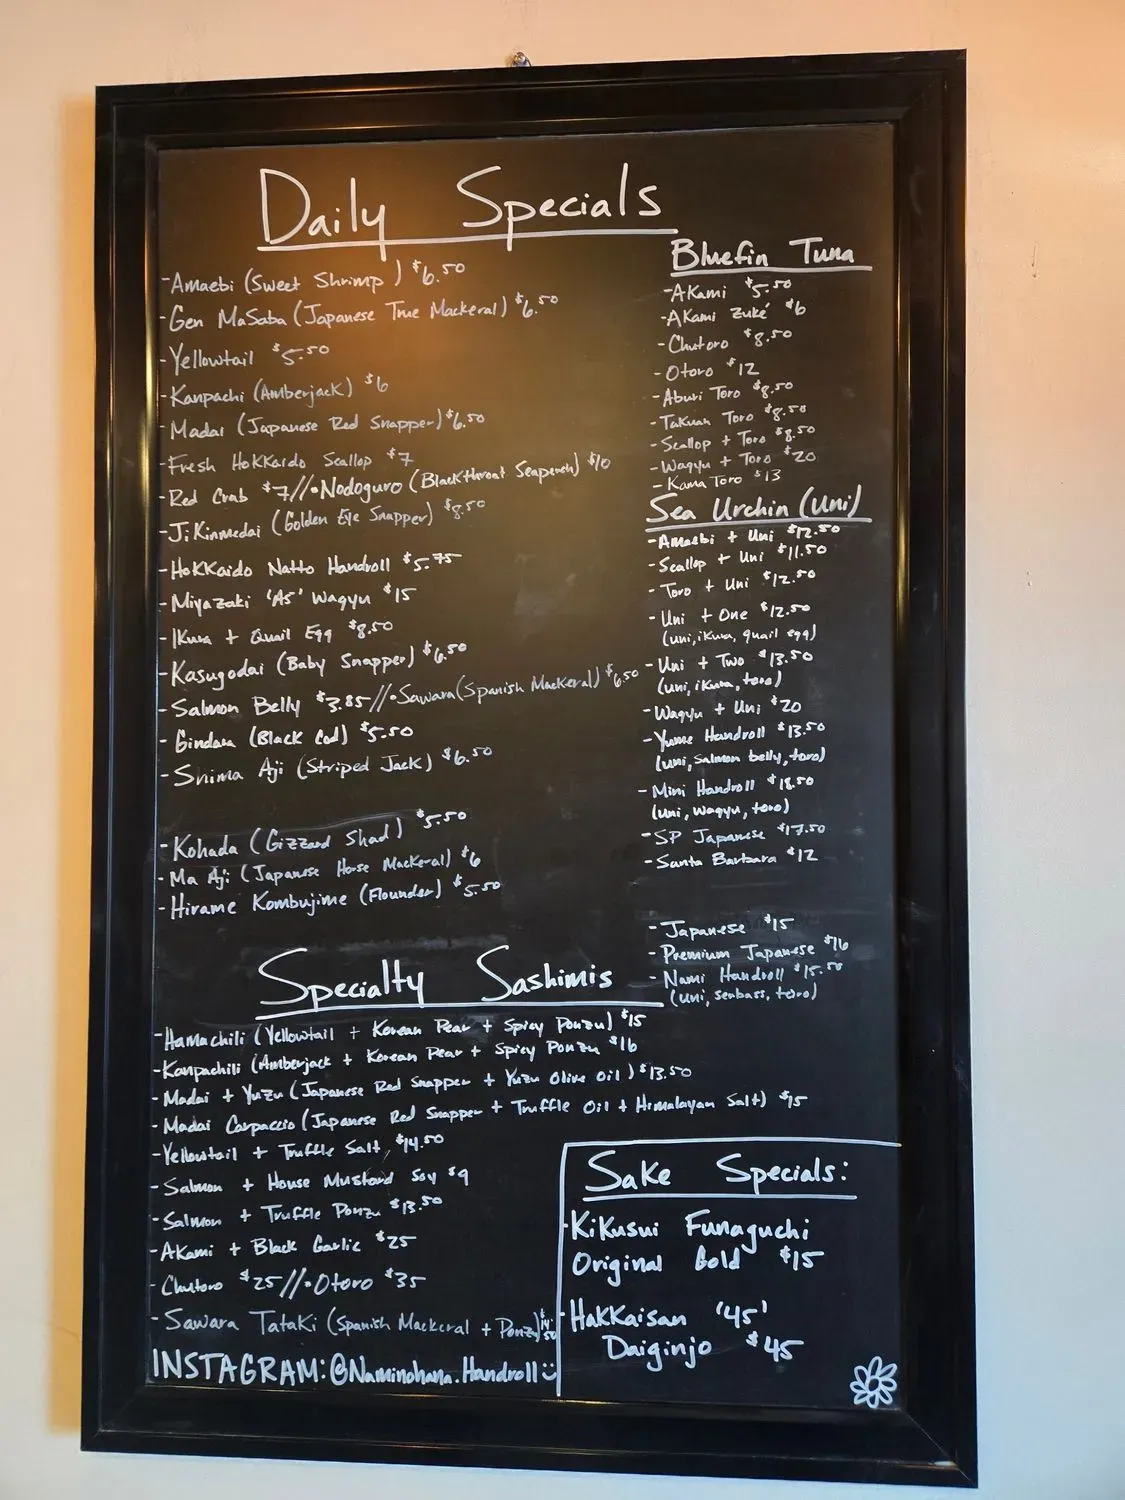 Daily Specials
-Amaebi (Sweet Shrimp) $6.50
-Gen MaSaba (Japanese True Mackeral) $6.50
-Yellowtail $5.50
-Kanpachi (Amberjack) $6
-Madai (Japanese Red Snapper) $6.50
-Fresh HoKKaido Scallop $7
-Red Crab $7//•Nodoguro (Blackthroat Seaperch) $10
-Ji Kinmedai (Golden Eye Snapper) $8.50
-HoKKaido Natto Handroll $5.75
-Miyazaki 'A5' Wagyu $15
-Ikura + Quail Egg $8.50
-Kasugodai (Baby Snapper) $6.50
-Salmon Belly $3.85//•Sawara (Spanish MacKeral) $6.50
-Gindara (Black Cod) $5.50
-Shima Aji (Striped Jack) $6.50
-Kohada (Gizzard Shad) $5.50
-Ma Aji (Japanese Horse MacKeral) $6
-Hirame Kombujime (Flounder) $5.50
Bluefin Tuna
-AKami $5.50
-AKami Zuké $6
-Chutoro $8.50
-Otoro $12
-Aburi Toro $8.50
-Takuan Toro $8.50
-Scallop + Toro $8.50
-Wagyu + Toro $20
-Kama Toro $13
Sea Urchin (Uni)
-Amaebi + Uni $12.50
-Scallop + Uni $11.50
-Toro + Uni $12.50
-Uni + One $12.50
(uni, ikura, quail egg)
-Uni + Two $13.50
(uni, ikura, toro)
-Wagyu + Uni $20
-Yume Handroll $13.50
(uni, salmon belly, toro)
-Mini Handroll $18.50
(uni, wagyu, toro)
-SP Japanese $17.50
-Santa Barbara $12
-Japanese $15
-Premium Japanese $16
-Nami Handroll $15.50
(uni, seabass, toro)
Specialty Sashimis
-Hamachili (Yellowtail + Korean Pear + Spicy Ponzu) $15
-Kanpachili (Amberjack + Korean Pear + Spicy Ponzu $16
-Madai + Yuzu (Japanese Red Snapper + Yuzu Olive Oil) $13.50
-Madai Carpaccio (Japanese Red Snapper + Truffle Oil + Himalayan Salt) $15
-Yellowtail + Truffle Salt $14.50
-Salmon + House Mustard Soy $9
-Salmon + Truffle Ponzu $13.50
-AKami + Black Garlic $25
-Chutoro $25//•Otoro $35
-Sawara TataKi (Spanish Mackeral + Ponzu) $14.50
INSTAGRAM:@Naminohana.Handroll
Sake Specials:
-KiKusui Funaguchi
Original Gold $15
-HaKKaisan '45'
Daiginjo $45